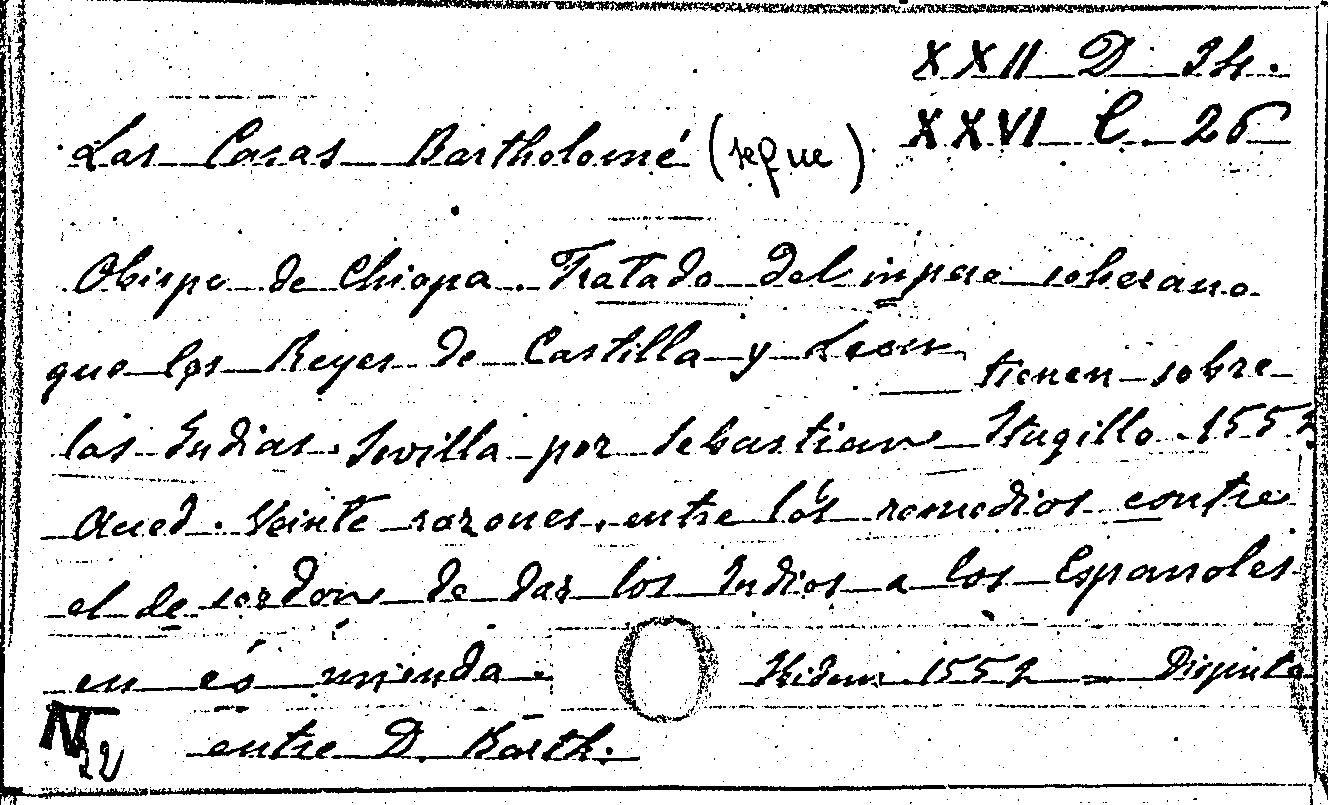 XXII D 34.
Las Casas Bartholomé (segue) XXVI C. 26
Obispo de Chiapa. Tratado del inpero soberano
que los Reyes de Castilla y Leon tienen sobre
las Indias. Sevilla por Sebastian Trugillo. 1552
Aued. Veinte razones. entre los remedios contre
el desordon de dar los Indios a los Espanoles
en es mienda. Ibidem. 1552 = Disputa
entre D. Barth.